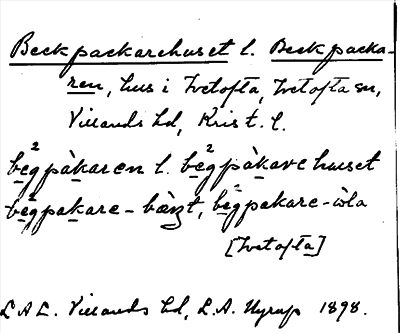 Beckpackarehuset l. Beckpacka-
ren, hus i Ivetofta, Ivetofta sn,
Villands hd, Krist. l.
bęg²påkaren l. bęg²påkarehuset
bęg²pakare-bæ̀nt, bęg²pakare-ùla
[Ivetofta]
L A L. Villands hd, L.A. Nyrup 1898.